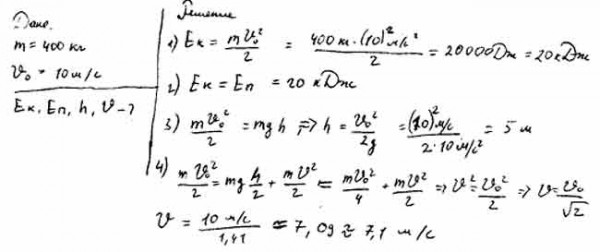 Дано.
m = 400 кг
υ₀ = 10 м/с
Eк, Eп, h, υ - ?
Решение
1) Eк = mυ₀²/2 = 400 кг·(10)² м/с²/2 = 20000 Дж = 20 кДж
2) Eк = Eп = 20 кДж
3) mυ₀²/2 = mgh ⇒ h = υ₀²/2g = (10)² м/с/2·10 м/с² = 5 м
4) mυ₀²/2 = mg h/2 + mυ²/2 = mυ₀²/4 + mυ²/2 ⇒ υ² = υ₀²/2 ⇒ υ = υ₀/√2
υ = 10 м/с/1,41 = 7,09 ≈ 7,1 м/с